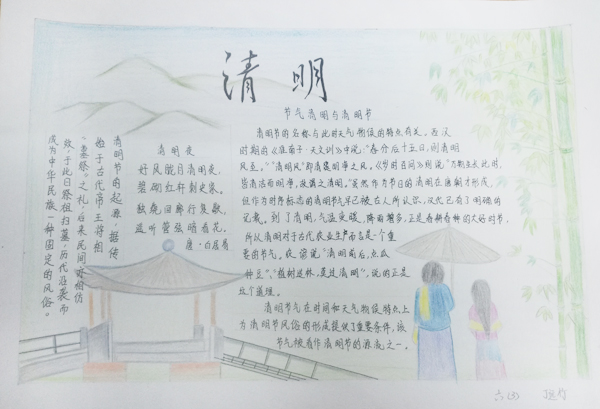 清明
清明节的起源，据传
始于古代帝王将相
“墓祭”之礼，后来民间亦相仿
效，于此日祭祖扫墓，历代沿袭而
成为中华民族一种固定的风俗。
清明夜
好风胧月清明夜，
碧砌红轩刺史家。
独绕回廊行复歇，
遥听管弦暗看花。
唐·白居易
节气清明与清明节
清明节的名称与此时天气物候的特点有关。西汉
时期的《淮南子·天文训》中说：“春分后十五日，则清明
风至。”“清明风”即清爽明净之风。《岁时百问》则说“万物生长此时，
皆清洁而明净，故谓之清明。”虽然作为节日的清明在唐朝才形成，
但作为时序标志的清明节气早已被古人所认识，汉代已有了明确的
记载。到了清明，气温变暖，降雨增多，正是春耕春种的大好时节。
所以清明对于古代农业生产而言是一个重
要的节气。农谚说“清明前后，点瓜
种豆”、“植树造林，莫过清明”，说的正是
这个道理。
清明节气在时间和天气物候特点上
为清明节风俗的形成提供了重要条件，该
节气被看作清明节的源流之一。
六(3)